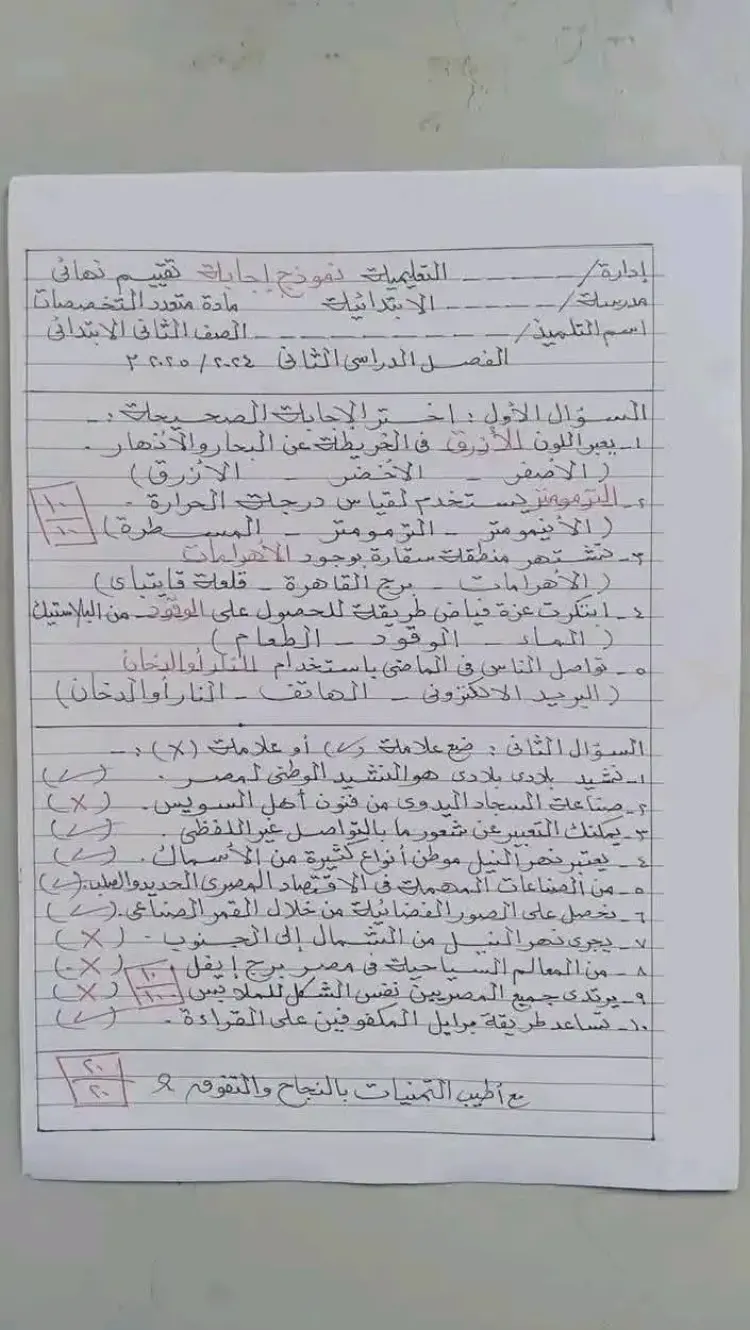 إدارة/ ------ التعليمية نموذج إجابة تقييم نهائى
مدرسة/ ------ الابتدائية مادة متعدد التخصصات
اسم التلميذ/ ------------ الصف الثانى الابتدائى
الفصل الدراسى الثانى ٢٠٢٤/٢٠٢٥ م
السؤال الأول : اختر الإجابة الصحيحة :-
١- يعبر اللون الأزرق فى الخريطة عن البحار والأنهار .
( الأصفر - الأخضر - الأزرق )
٢- الترمومتر يستخدم لقياس درجة الحرارة .
( الأنيمومتر - الترمومتر - المسطرة )
١٠
١٠
٣- تشتهر منطقة سقارة بوجود الأهرامات
( الأهرامات - برج القاهرة - قلعة قايتباى )
٤- ابتكرت عزة فياض طريقة للحصول على الوقود من البلاستيك
( الماء - الوقود - الطعام )
٥- تواصل الناس فى الماضى باستخدام النار أو الدخان
( البريد الالكترونى - الهاتف - النار أو الدخان )
السؤال الثانى : ضع علامة (✓) أو علامة (X) :-
١- نشيد بلادى بلادى هو النشيد الوطنى لمصر . (✓)
٢- صناعة السجاد اليدوى من فنون أهل السويس . (X)
٣- يمكنك التعبير عن شعور ما بالتواصل غير اللفظى . (✓)
٤- يعتبر نهر النيل موطن أنواع كثيرة من الأسماك . (✓)
٥- من الصناعات المهمة فى الاقتصاد المصرى الحديد والصلب . (✓)
٦- نحصل على الصور الفضائية من خلال القمر الصناعى . (✓)
٧- يجرى نهر النيل من الشمال إلى الجنوب . (X)
٨- من المعالم السياحية فى مصر برج إيفل (X)
٩- يرتدى جميع المصريين نفس الشكل للملابس (X)
١٠
١٠
١٠- تساعد طريقة برايل المكفوفين على القراءة . (✓)
مع أطيب التمنيات بالنجاح والتفوق
٢٠
٢٠